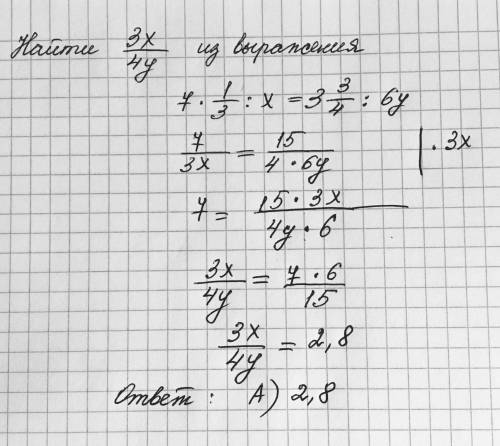 Найти 3x/4y из выражения
7 · 1/3 : x = 3 3/4 : 6y
7/3x = 15/4 · 6y | · 3x
7 = 15 · 3x/4y · 6
3x/4y = 7 · 6/15
3x/4y = 2,8
Ответ : А) 2,8